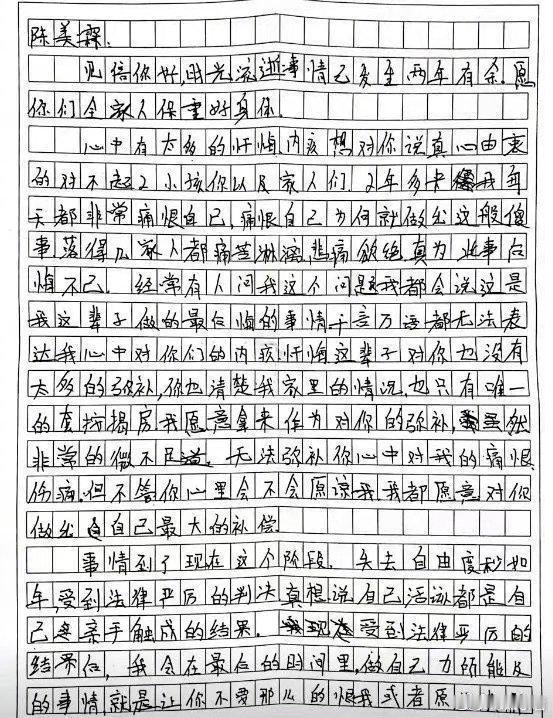 陈美霖.
见信你好,时光流逝事情已发生两年有余.愿
你们全家人保重好身体.
心中有太多的忏悔内疚想对你说真心由衷
的对不起2小孩你以及家人们.2年多来我每
天都非常痛恨自己,痛恨自己为何就做出这般傻
事落得几家人都痛苦淋漓,悲痛欲绝真为此事后
悔不已.经常有人问我这个问题我都会说这是
我这辈子做的最后悔的事情千言万语都无法表
达我心中对你们的内疚忏悔这辈子对你也没有
太多的弥补,你也清楚我家里的情况,也只有唯一
的套按揭房我愿意拿来作为对你的弥补,虽然
非常的微不足道.无法弥补你心中对我的痛恨
伤痛.但不管你心里会不会原谅我我都愿意对你
做出自己最大的补偿.
事情到了现在这个阶段.失去自由度秒如
年,受到法律严厉的判决真想说自己活该都是自
己亲手触成的结果.受到法律严厉的
结果后,我会在最后的时间里,做自己力所能及
的事情,就是让你不要那么的恨我或者原